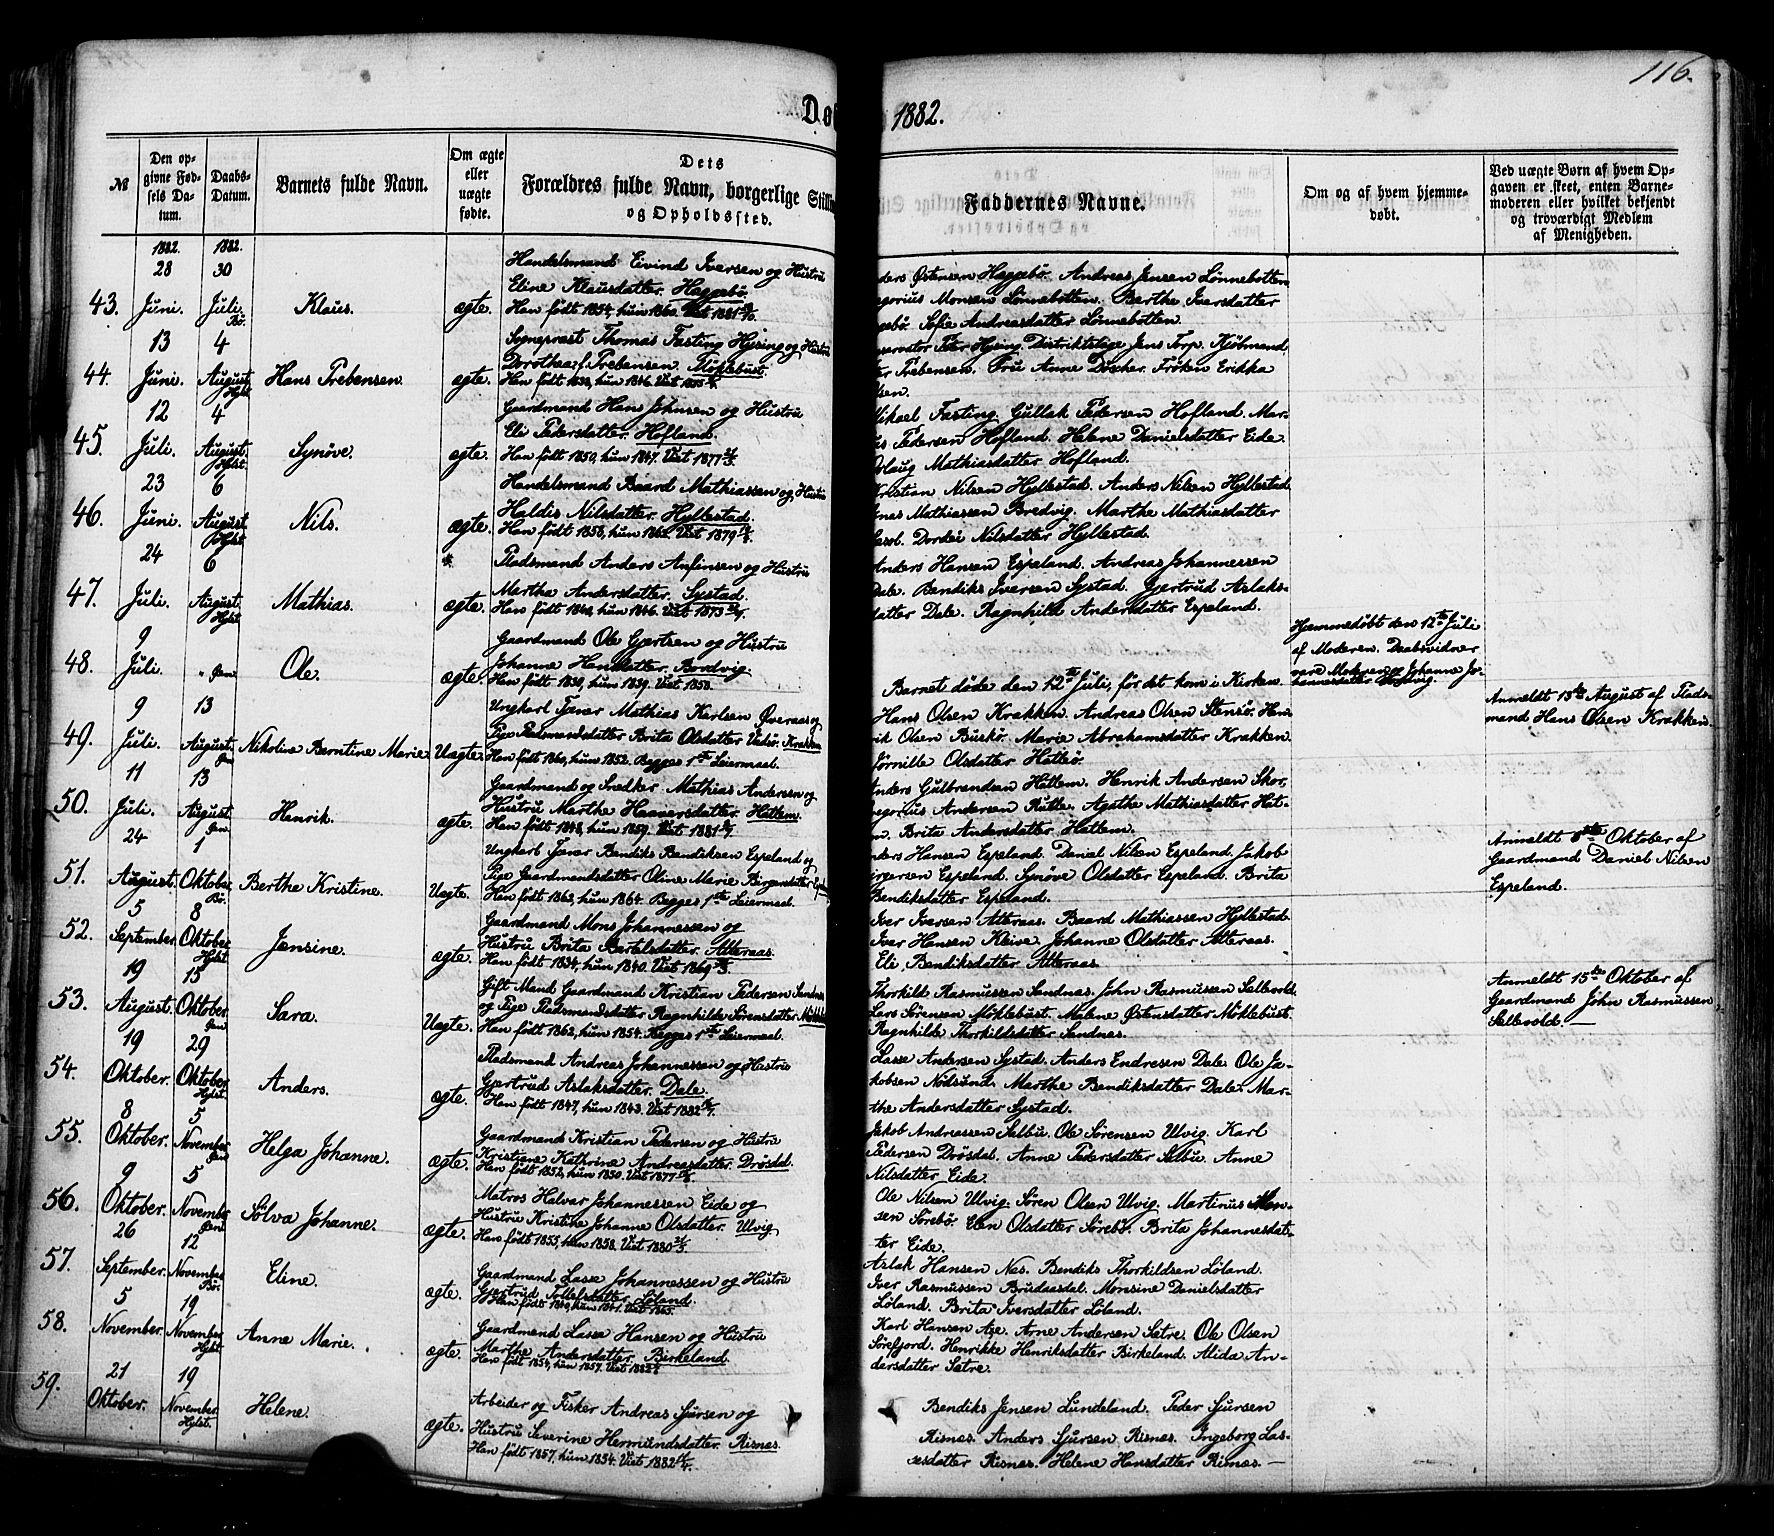 116.
Dø 1882.
№
Den op-
givne Fød-
sels Da-
tum.
Daabs-
Datum.
Barnets fulde Navn.
Om ægte
eller
uægte
fødte.
Dets
Forældres fulde Navn, borgerlige Stilli
og Opholdssted.
Faddernes Navne.
Om og af hvem hjemme-
døbt.
Ved uægte Børn af hvem Op-
gaven er skeet, enten Barne-
moderen eller hvilket bekjendt
og troværdigt Medlem
af Menigheden.
1882. 1882.
43. 28 Juni. 30 Juli. Bø. Klaus. ægte.
Handelsmand Eivind Iversen og Hustru
Eline Klausdatter. Haggebø.
Han født 1854, hun 1860. Viet 1881
nders Østensen Haggebø. Andreas Jensen Lønnebotten
egorius Monsen Lønnebotten. Berthe Iversdatter
gebø. Sofie Andreasdatter Lønnebotten.
44. 13 Juni. 4 August. Hylst. Hans Prebensen. ægte.
Sogneprest Thomas Fasting Hysing og Hustru
Dorothea f. Prebensen. Møklebust.
Han født 1838, hun 1846. Viet
servator Peter Hysing. Distriktslæge Jens Torp. Kjøbmand
ter Prebensen. Fru Anne Døscher. Frøken Erikka
lsen.
45. 12 Juli. 4 August. Hylst. Synøve. ægte.
Gaardmand Hans Johnsen og Hustru
Eli Pedersdatter. Hofland.
Han født 1850, hun 1847. Viet 1877
Mikael Fasting. Gullak Pedersen Hofland. Mar-
us Pedersen Hofland. Helene Danielsdatter Eide.
Aslaug Mathiasdatter Hofland.
46. 23 Juni. 6 August. Hylst. Nils. ægte.
Handelsmand Baard Mathiassen og Hustru
Haldis Nilsdatter. Hyllestad.
Han født 1858, hun Viet 1879
Kristian Nilsen Hyllestad. Anders Nilsen Hyllestad.
nas Mathiassen Bredvig. Marthe Mathiasdatter
Dordei Nilsdatter Hyllestad.
47. 24 Juli. 6 August. Hylst. Mathias. ægte.
Pladsmand Anders Anfinsen og Hustru
Martha Andersdatter. Systad.
Han født 1840, hun 1846. Viet 1873
Anders Hansen Espeland. Andreas Johannessen
Dale. Bendiks Iversen Systad. Gjertrud Aslaks-
datter Dale. Ragnhild Andersdatter Espeland.
48. 9 Juli. " Øen Ole. ægte.
Gaardmand Ole Gjertsen og Hustru
Johanne Hansdatter. Bredvig.
Han født 1830, hun 1839. Viet 1858.
Barnet døde den 12te Juli, før det kom i Kirken.
Hjemmedøbt den 12te Juli
af Moderen. Daabsvidner
vare Moderen og Johanne Jo-
hannesdatter
49. 9 Juli. 13 August. Øen Nikoline Berntine Marie. Uægte.
Ungkarl Tjener Mathias Karlsen Øveraas og
Pige Pladsmandsdatter Brita Olsdatter Krakken
Han født 1860, hun 1852. Begges 1ste Leiermaal.
Hans Olsen Krakken. Andreas Olsen Stensø. Hen-
rik Olsen Buskø. Marie Abrahamsdatter Krakken.
Jørnille Olsdatter Hatlø.
Anmeldt 13de August af Plads-
mand Hans Olsen Krakken.
50. 11 Juli. 13 August. Øen Henrik. ægte.
Gaardmand og Snedker Mathias Andersen og
Hustru Marthe Haavarsdatter. Hatlem.
Han født 1848, hun 1859. Viet 1881
Anders Gulbrandsen Hatlem. Henrik Andersen Skor.
egorius Andersen Rutle. Agathe Mathiasdatter Hat-
m. Brita Andersdatter Hatlem.
51. 24 August. 1 Oktober. Bø. Berthe Kristine. Uægte.
Ungkarl Tjener Bendiks Bendiksen Espeland og
Pige Gaardmandsdatter Oline Marie Birgersdatter
Han født 1863, hun 1864. Begges 1ste Leiermaal.
nders Hansen Espeland. Daniel Nilsen Espeland. Jakob
irgersen Espeland. Synøve Olsdatter Espeland. Brita
Bendiksdatter Espeland.
Anmeldt Oktober af
Gaardmand Daniel Nilsen
Espeland.
52. 5 September. 8 Oktober. Hylst. Jensine. ægte.
Gaardmand Mons Johannessen og
Hustru Brita Bertelsdatter. Atteraas.
Han født 1834, hun 1840. Viet 1869
Iver Iversen Atteraas. Baard Mathiassen Hyllestad.
Iver Hansen Kleive. Johanne Olsdatter Atteraas.
Eli Bendiksdatter Atteraas.
53. 19 August. 15 Oktober. Øen Sara. Uægte.
Gift Mand Gaardmand Kristian Pedersen Sandnes
og Pige Pladsmandsdatter Ragnhilde Sørensdatter
Han født 1863, hun 1854. Begges 1ste Leiermaal.
Thorkild Rasmussen Sandnes. John Rasmussen Selbvold.
Lars Sørensen Møklebust. Malene Østensdatter Møklebust.
Ragnhilde Thorkildsdatter Sandnes.
Anmeldt 15de Oktober af
Gaardmand John Rasmussen
Selbvold. —
54. 19 Oktober. 29 Oktober. Hylst. Anders. ægte.
Pladsmand Andreas Johannessen og Hustru
Gjertrud Aslaksdatter. Dale.
Han født 1847, hun 1843. Viet 1882
Lasse Andersen Systad. Anders Endresen Dale. Ole Ja-
kobsen Nødsund. Marthe Bendiksdatter Dale. Mar-
the Andersdatter Systad.
55. 8 Oktober. 5 November. Øen Helga Johanne. ægte.
Gaardmand Kristian Pedersen og Hustru
Kristiane Kathrine Andreasdatter. Drøsdal.
Han født 1852, hun 1850. Viet 1877
Jakob Andreassen Selbu. Ole Sørensen Ulvig. Karl
Pedersen Drøsdal. Anne Pedersdatter Selbu. Anne
Nilsdatter Eide.
56. 9 Oktober. 5 November. Øen Sølva Johanne. ægte.
Matros Halvar Johannessen Eide og
Hustru Kristine Johanne Olsdatter. Ulvig.
Han født 1855, hun 1858. Viet 1880
Ole Nilsen Ulvig. Søren Olsen Ulvig. Martinus Mon-
sen Sørebø. Elen Olsdatter Sørebø. Brita Johannesdat-
ter Eide.
57. 26 September. 12 November. Bø. Eline. ægte.
Gaardmand Lasse Johannessen og Hustru
Gjertrud Tollefsdatter. Løland.
Han født 1840, hun 1841. Viet 1865.
Aslak Hansen Nes. Bendiks Thorkildsen Løland.
Iver Rasmussen Brudaasdal. Monsine Danielsdatter
Løland. Brita Iversdatter Løland.
58. 5 November. 19 November. Hylst. Anne Marie. ægte.
Gaardmand Lasse Hansen og Hustru
Marthe Andersdatter. Birkeland.
Han født 1854, hun 1857. Viet
Karl Hansen Aae. Arne Andersen Sætre. Ole Olsen
Sørefjord. Henrikke Henriksdatter Birkeland. Alida An-
dersdatter Sætre.
59. 21 Oktober. 19 November. Hylst. Helene. ægte.
Arbeider og Fisker Andreas Sjursen og
Hustru Severine Hermundsdatter. Risnes.
Han født 1857, hun 1854. Viet 1882
Bendiks Jensen Lundeland. Peder Sjursen
Risnes. Anders Sjursen Risnes. Ingeborg Las-
sesdatter Risnes. Helene Hansdatter Risnes. —